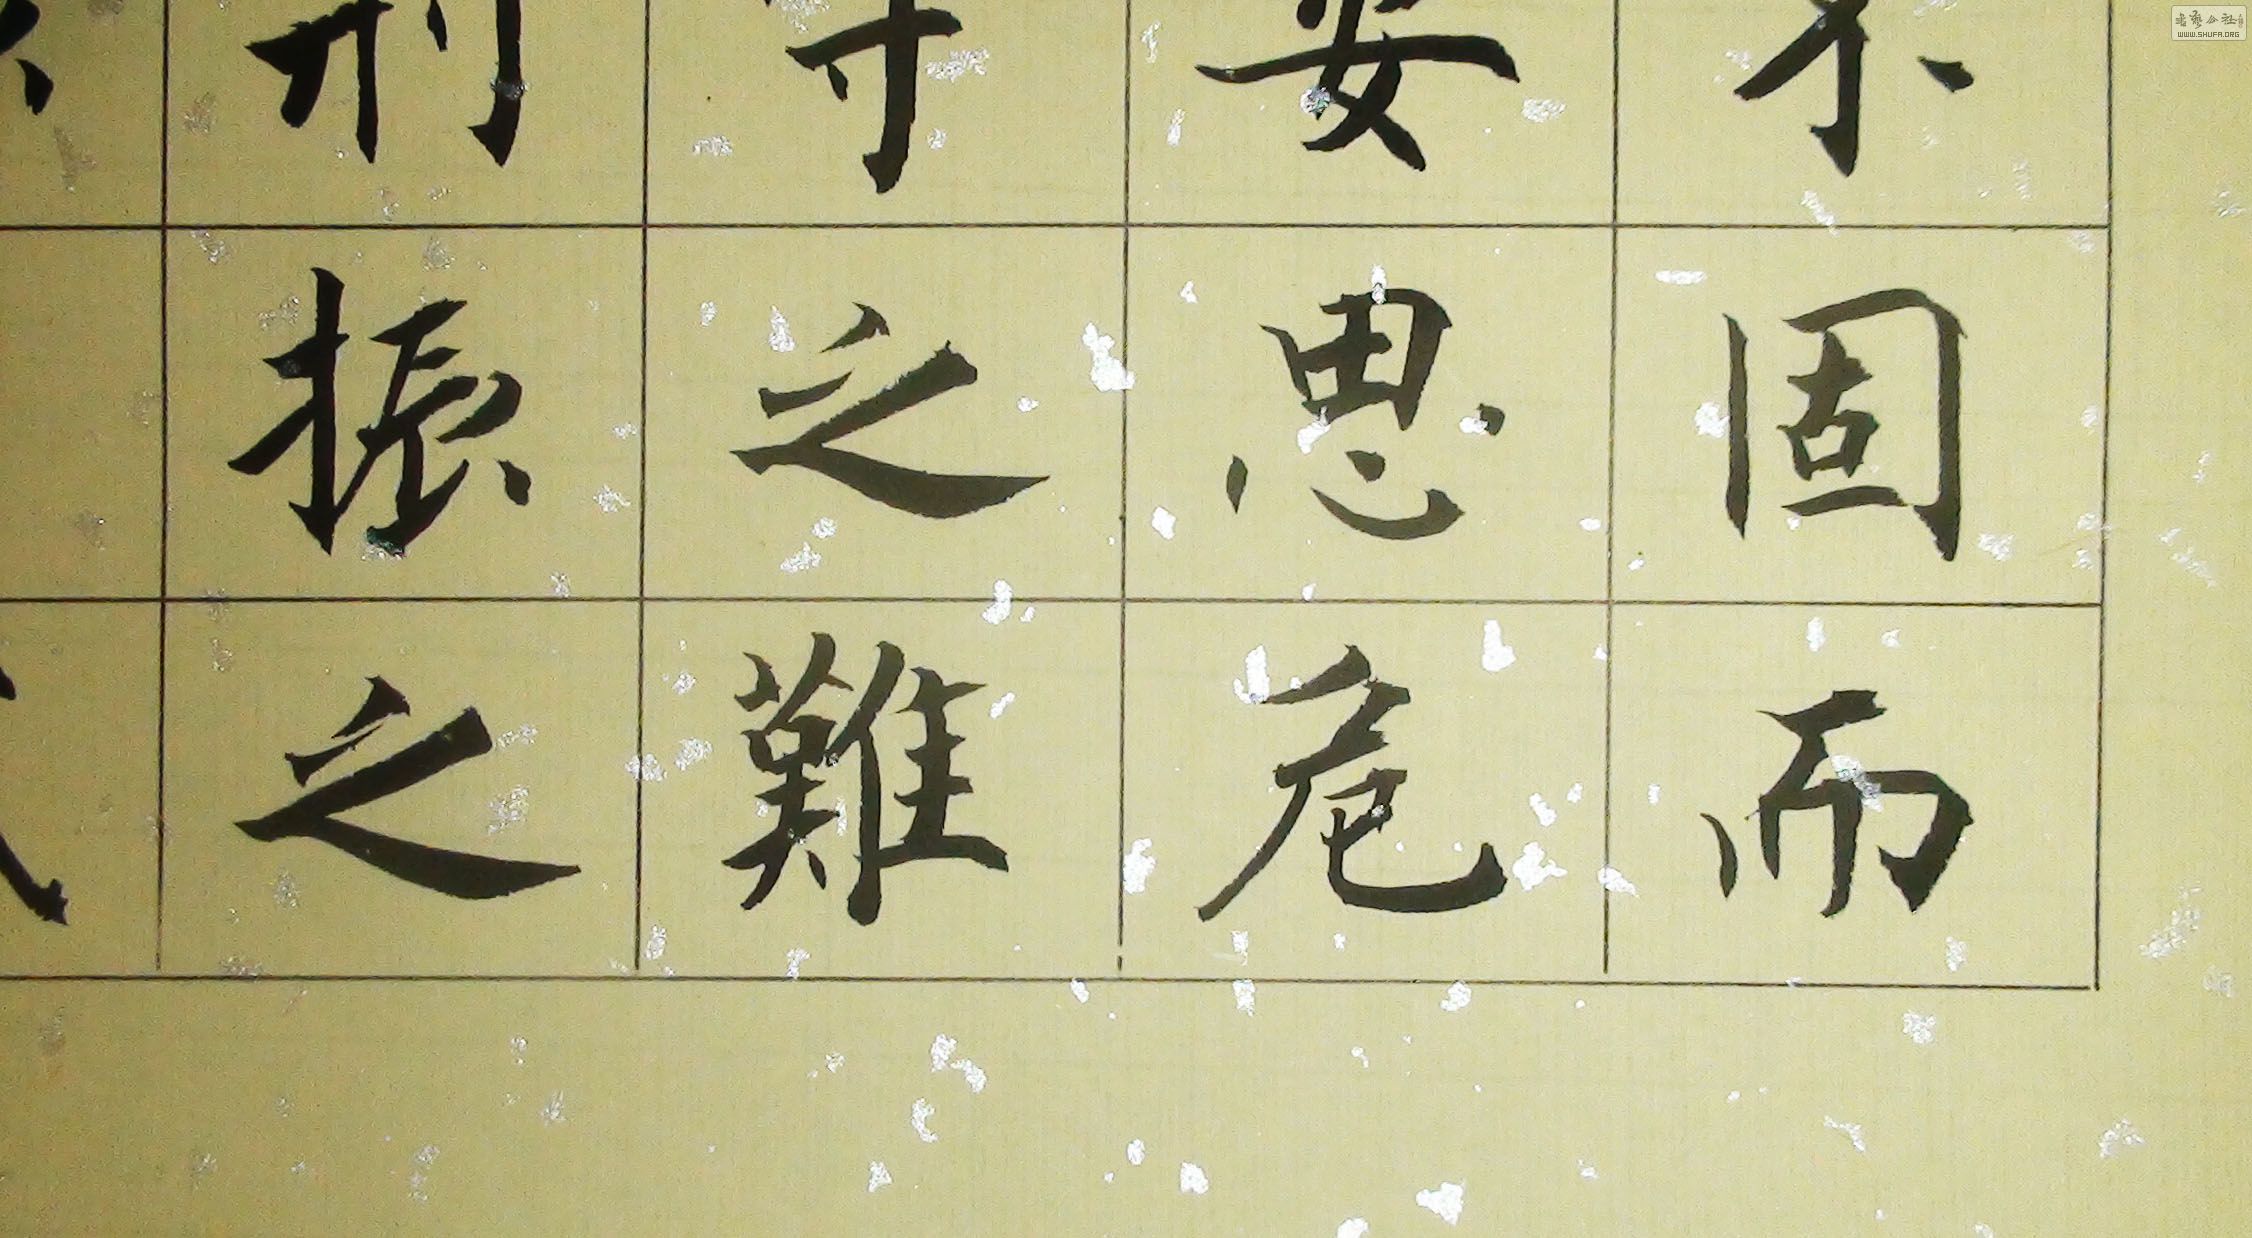 不固而
安思危
守之難
刑振之
書藝公社
WWW.SHUFA.ORG